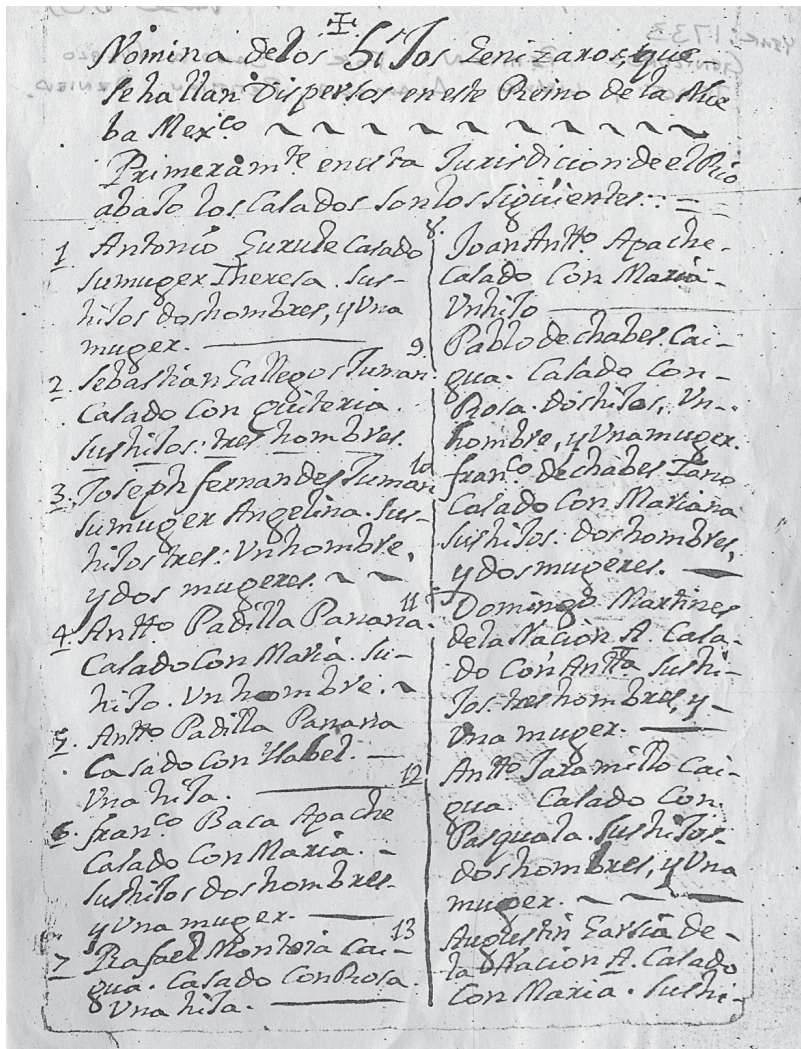 Nomina de los hiJos Genizaros, que
se hallan Dispersos en este Reino de la Nue
ba Mex.co
Primeram.te en esta Jurisdicion de el Rio
abaJo los Casados son los siguientes:
1 Antonio Gurule Casado
su muger Theresa. sus
hiJos dos hombres, y Una
muger.
2. Sebastian Gallegos Juman
Casado Con quiteria.
sus hiJos: tres hombres.
3. Joseph fernandes Juman
su muger Angelina. sus
hiJos tres: Un hombre,
y dos mugeres.
4. Antto Padilla Panana
Casado Con Maria. su
hiJo. Un hombre.
5. Antto Padilla Panana
Casado Con Ysabel.
Una hiJa.
6. fran.co Baca Apache
Casado Con Maria.
sus hiJos dos hombres
y Una muger.
7 Rafael Montoia Cai-
gua. Casado Con Rosa.
Una hiJa.
8. Joan Antto. Apache
Casado Con Maria
Un hiJo
9. Pablo de chabes. Cai-
gua. Casado Con
Rosa. dos hiJos, Un
hombre, y Una muger.
10 fran.co de chabes Jano
Casado Con Mariana
sus hiJos: dos hombres,
y dos mugeres.
11 Domingo Martines
de la Nacion A. Casa-
do Con Antta sus hi-
Jos tres hombres, y
Una muger.
12 Antto Jaramillo Cai-
gua. Casado Con
Pasquala. sus hiJos
dos hombres, y Una
muger.
13 Augustin Garsia de
la Nacion A. Casado
Con Maria. sus hi-